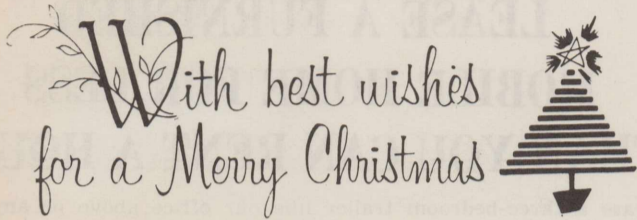 With best wishes
for a Merry Christmas